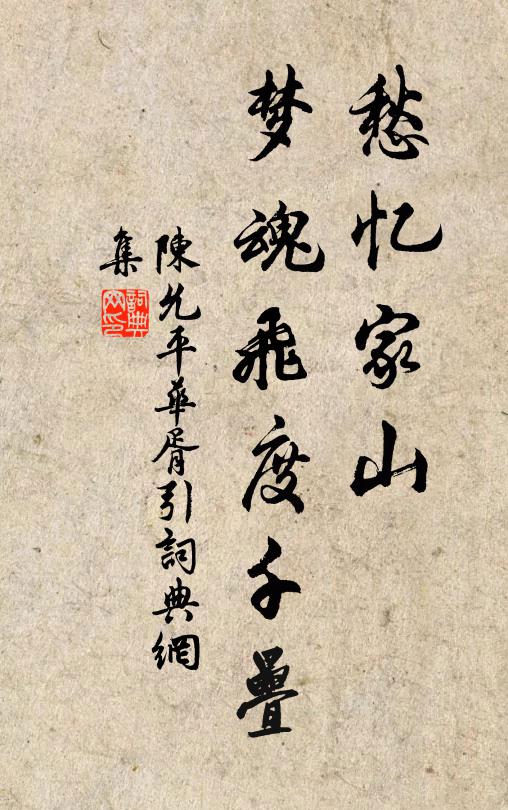 愁忆家山
梦魂飛度千疊
陳允平華胥引詞典網
集
詞典
网印